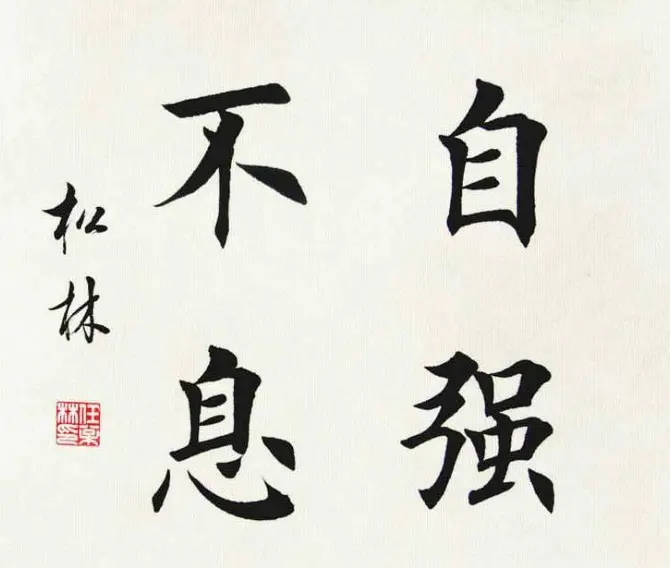 自强
不息
松林